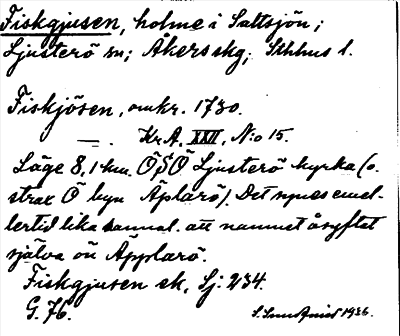 Fiskgjusen, holme i Saltsjön;
Ljusterö sn; Åkers skg; Sthlms l.
Fiskjösen, omkr. 1730.
—. Kr.A. XXII, N:o 15.
Läge 8,1 km. ÖSÖ Ljusterö kyrka (o.
strax Ö byn Äplarö). Det synes emel-
lertid lika sannol. att namnet åsyftat
själva ön Äpplarö.
Fiskgjusen ek, Sj: 234.
G. 76.
1936.